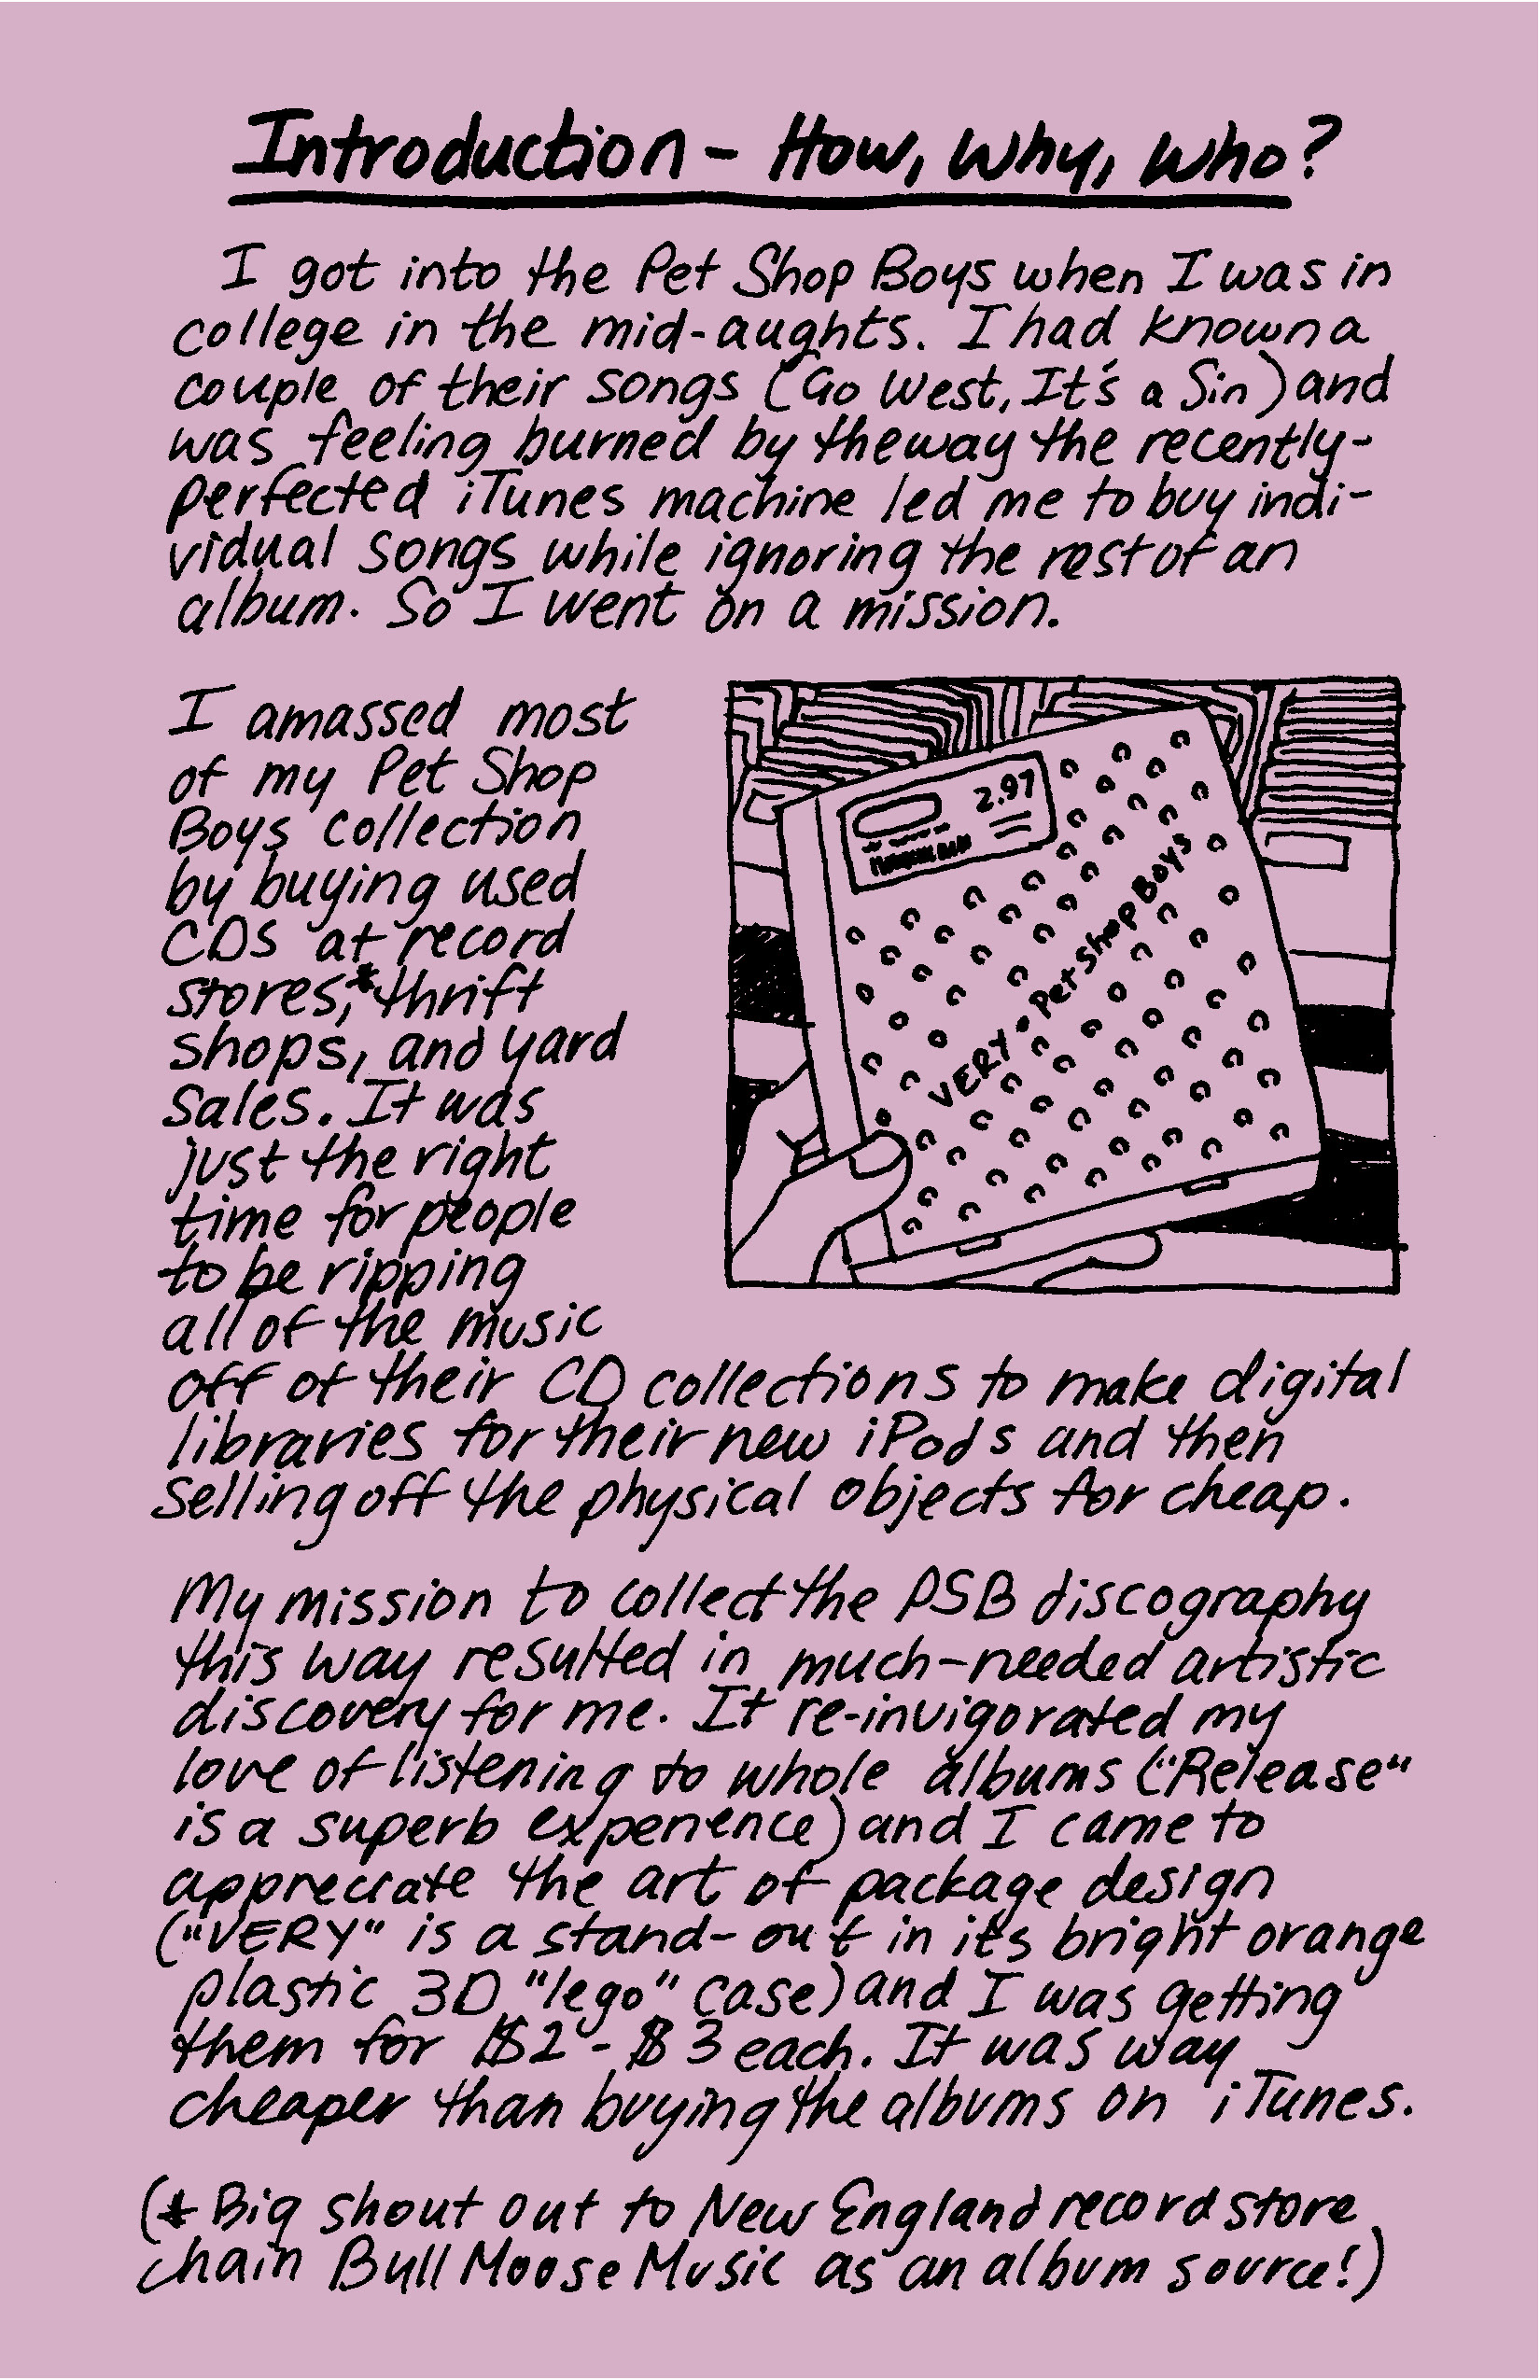 Introduction - How, Why, Who?
I got into the Pet Shop Boys when I was in
college in the mid-aughts. I had known a
couple of their songs (Go West, It's a Sin) and
was feeling burned by the way the recently-
perfected iTunes machine led me to buy indi-
vidual songs while ignoring the rest of an
album. So I went on a mission.
I amassed most
of my Pet Shop
Boys collection
by buying used
CDs at record
stores,* thrift
shops, and yard
sales. It was
just the right
time for people
to be ripping
all of the music
off of their CD collections to make digital
libraries for their new iPods and then
selling off the physical objects for cheap.
2.97
VERY • Pet Shop Boys
My mission to collect the PSB discography
this way resulted in much-needed artistic
discovery for me. It re-invigorated my
love of listening to whole albums ("Release"
is a superb experience) and I came to
appreciate the art of package design
("VERY" is a stand-out in its bright orange
plastic 3D "lego" case) and I was getting
them for $2-$3 each. It was way
cheaper than buying the albums on iTunes.
(* Big shout out to New England record store
chain Bull Moose Music as an album source!)